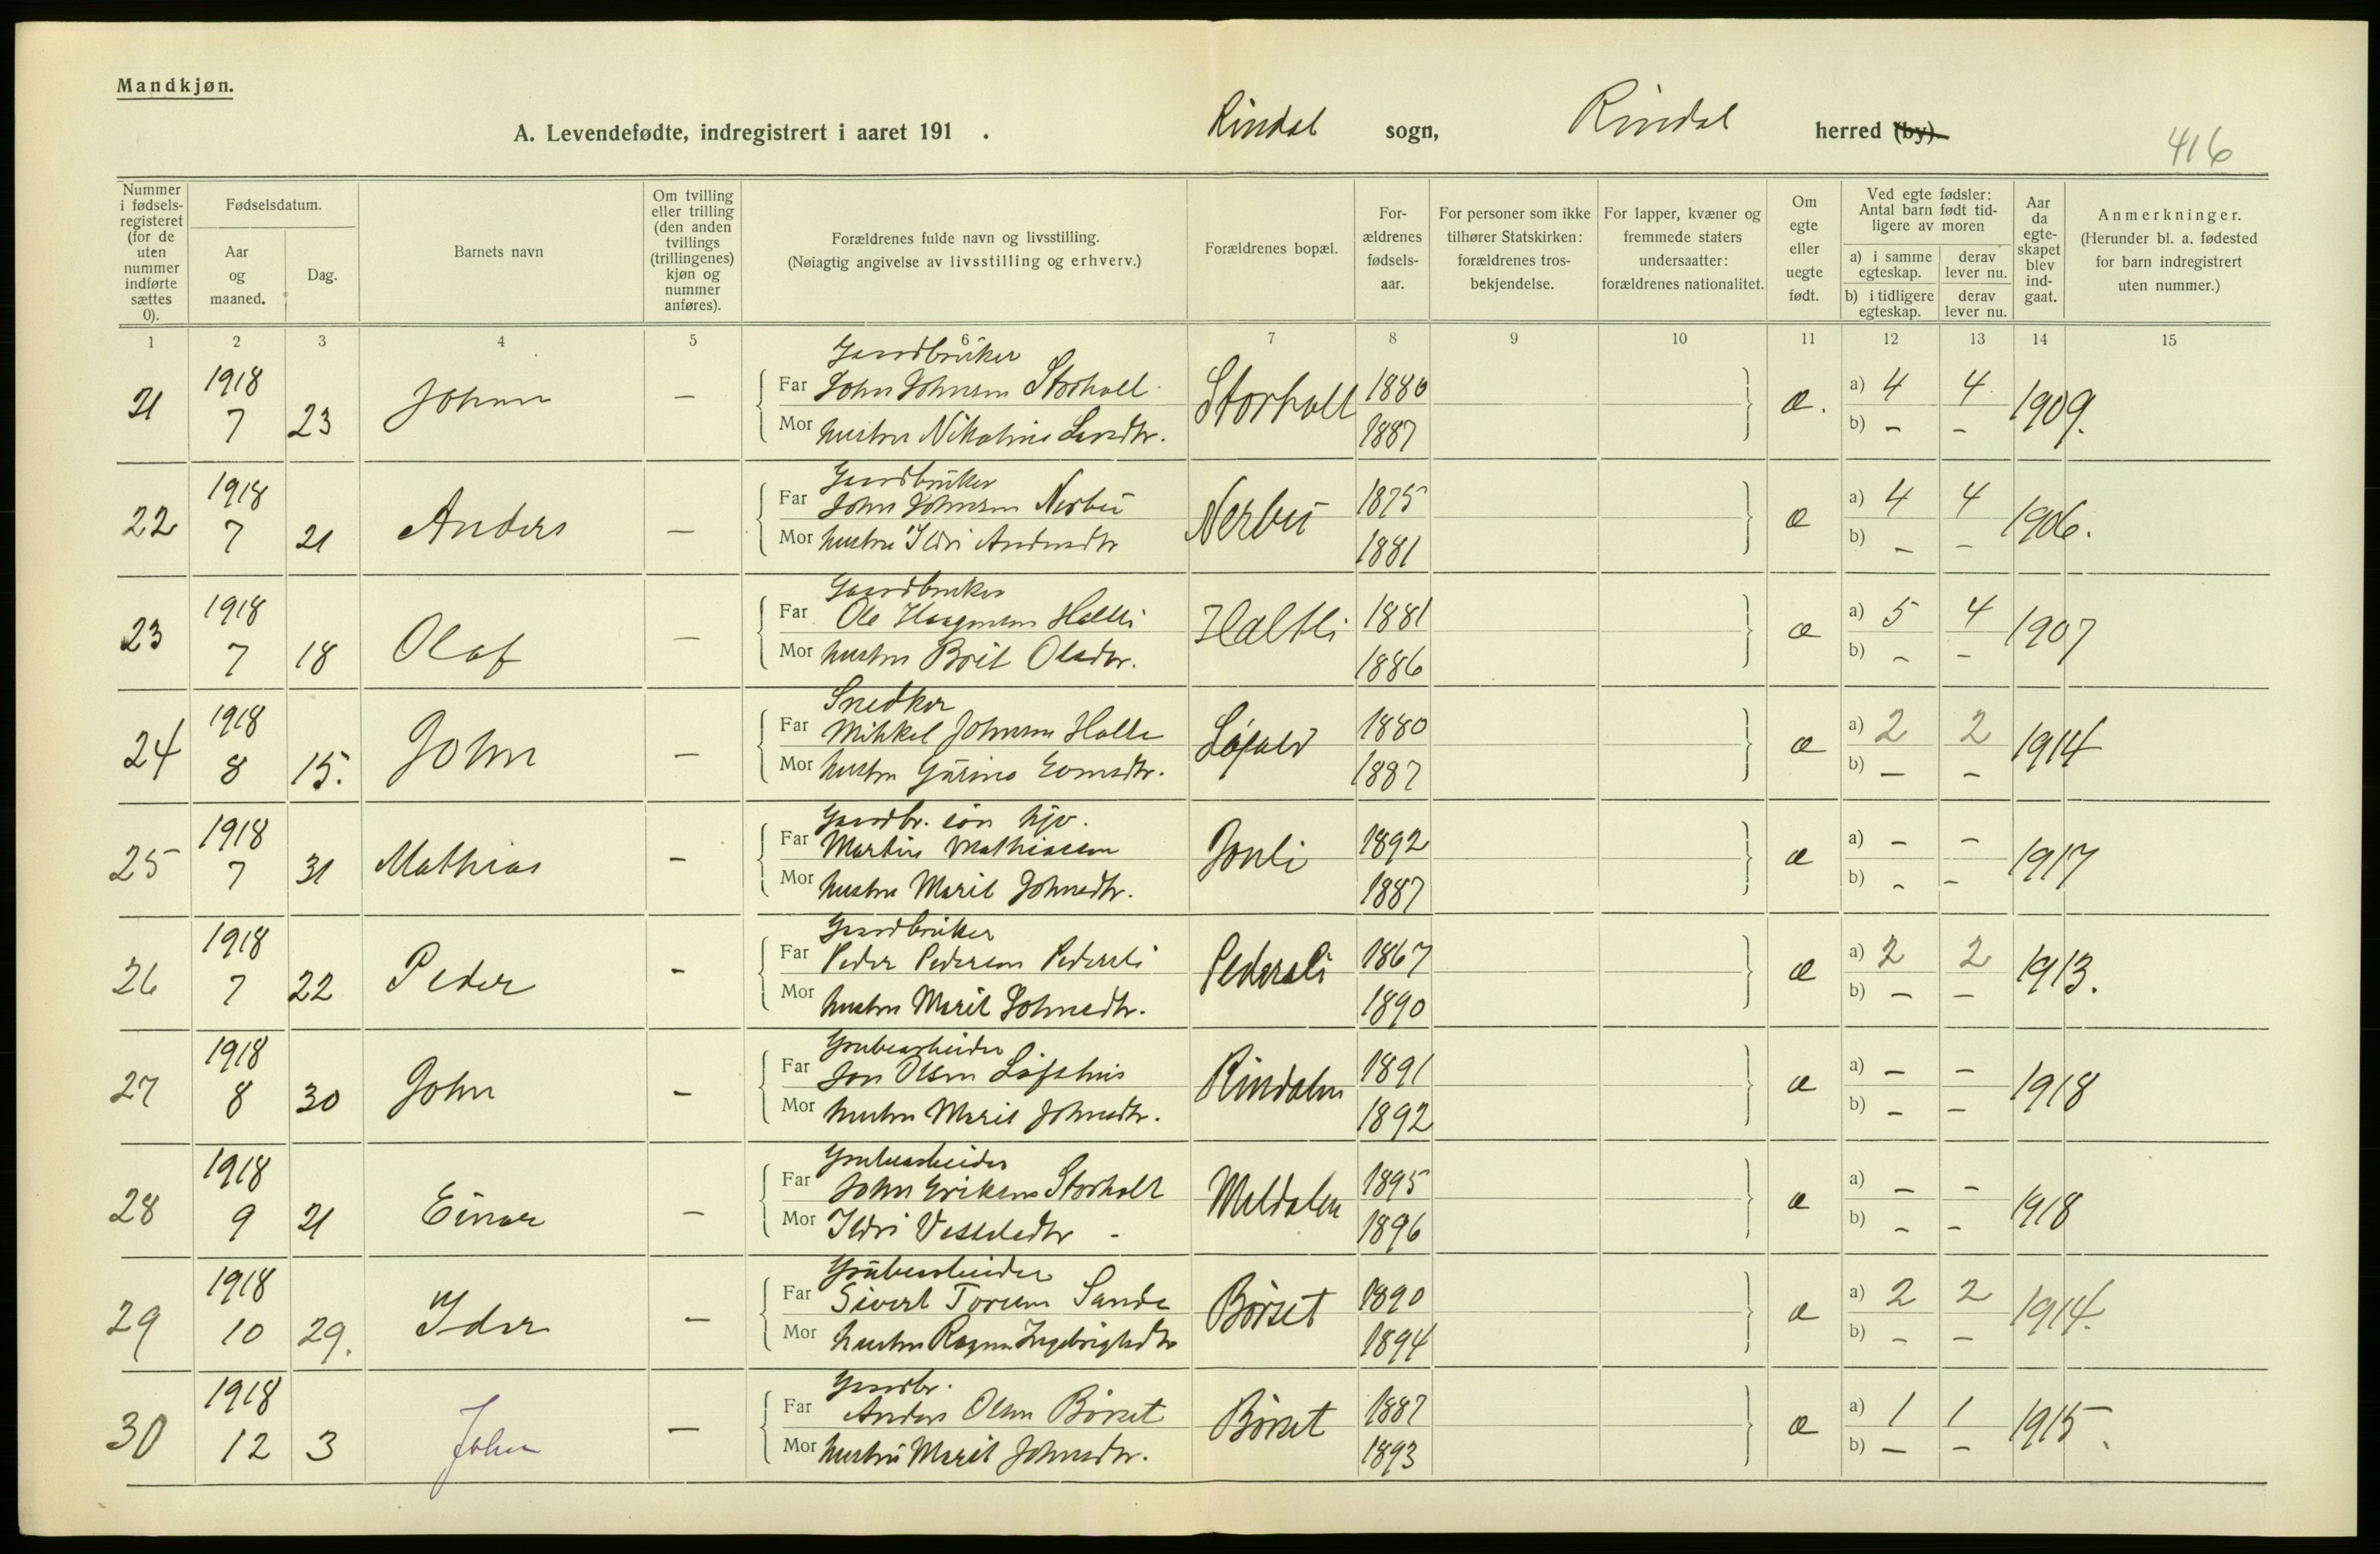 Mandkjøn.
A. Levendefødte, indregistrert i aaret 191 . Rindal sogn, Rindal herred (by).
416
Nummer i fødselsregisteret (for de uten nummer indførte sættes 0).
Fødselsdatum.
Aar og maaned.
Dag.
Barnets navn
Om tvilling eller trilling (den anden tvillings (trillingenes) kjøn og nummer anføres).
Forældrenes fulde navn og livsstilling.
(Nøiagtig angivelse av livsstilling og erhverv.)
Forældrenes bopæl.
For-ældrenes fødsels-aar.
For personer som ikke tilhører Statskirken: forældrenes tros-bekjendelse.
For lapper, kvæner og fremmede staters undersaatter: forældrenes nationalitet.
Om egte eller uegte født.
Ved egte fødsler: Antal barn født tid-ligere av moren
a) i samme egteskap. derav lever nu.
b) i tidligere egteskap. derav lever nu.
Aar da egte-skapet blev ind-gaat.
Anmerkninger.
(Herunder bl. a. fødested for barn indregistrert uten nummer.)
1 2 3 4 5 6 7 8 9 10 11 12 13 14 15
Gaardbruker
21 1918 7 23 Johan – Far John Johnsen Storholt Storholt 1880 æ. a) 4 4 1909.
Mor hustru Nikoline Larsdtr. 1887 b) – –
Gaardbruker
22 1918 7 21 Anders – Far John Johnsen Nerbu Nerbu 1875 æ a) 4 4 1906.
Mor hustru Ildri Andersdtr 1881 b) – –
Gaardbruker
23 1918 7 18 Olaf – Far Ole Haagensen Haltli Haltli 1881 æ a) 5 4 1907
Mor hustru Brit Olsdtr. 1886 b) – –
Snedker
24 1918 8 15. John – Far Mikkel Johnsen Løfald 1880 æ a) 2 2 1914
Mor hustru Gurine 1887 b) – –
Gaardbr. søn hjv.
25 1918 7 31 Mathias – Far Martin Mathiassen Jonli 1892 æ a) – – 1917
Mor hustru Marit Johnsdtr. 1887 b) – –
Gaardbruker
26 1918 7 22 Peder – Far Peder Pedersen Pedersli Pedersli 1867 æ a) 2 2 1913.
Mor hustru Marit Johnsdtr. 1890 b) – –
Grubearbeider
27 1918 8 30 John – Far Jon Olsen Rindalen 1891 æ a) – – 1918
Mor hustru Marit Johnsdtr. 1892 b) – –
Grubearbeider
28 1918 9 21 Einar – Far John Eriksen Storholt Meldalen 1895 æ a) – – 1918
Mor Ildri Vesseledtr – 1896 b) – –
Grubearbeider
29 1918 10 29. Ider – Far Sivert Toresen Sande Børset 1890 æ a) 2 2 1914.
Mor hustru Ragna Ingebrigtsdtr 1894 b) – –
Gaardbr.
30 1918 12 3 John – Far Anders Olsen Børset Børset 1887 æ a) 1 1 1915.
Mor hustru Marit Johnsdtr. 1893 b) – –